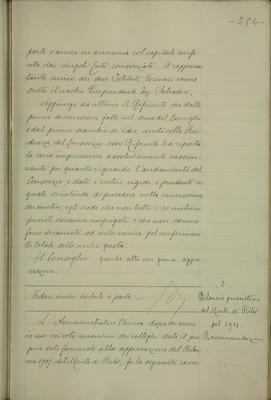 - 254 -
parte e anche in armonia col capitale confe-
rito dai singoli Enti consorziati. A rappresen-
tante unico dei due Istituti torinesi venne
scelto il nostro Vicepresidente Ing. Salvadori.
Aggiunge da ultimo il Riferente che dalle
prime discussioni fatte nel seno del Consiglio
e dal primo scambio di idee avuto colla Pre-
sidenza del Consorzio esso Riferente ha riporta-
to una impressione assolutamente rassicu-
rante per quanto riguarda l'andamento del
Consorzio, e dati i criteri rigidi e prudenti coi
quali s'intende di procedere nella concessione
dei mutui, egli crede che non tutti i
previsti saranno impiegati e che non saremo
forse chiamati ad intervenire pel conferimen-
to totale della nostra quota.
Il Consiglio prende atto con piena appro-
vazione.
Vedasi anche verbale a parte.
3
Bilancio preventivo
del Monte di Pietà
pel 1917.
Raccomandazioni
L'Amministratore Chiesa dopo di avere
in un coi voti unanimi dei colleghi dato il pro-
prio voto favorevole alla approvazione del Bilan-
cio 1917 del Monte di Pietà, fa la seguente racco-